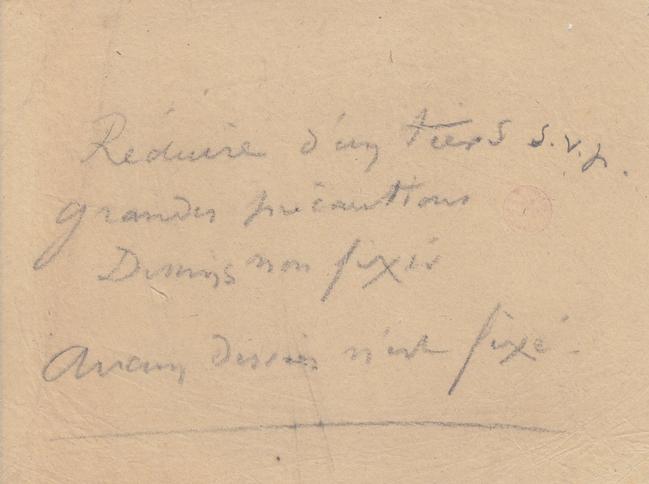 Réduire d'un tiers s.v.p.
grandes précautions
Dessins non fixés
Aucun dessin n'est fixé